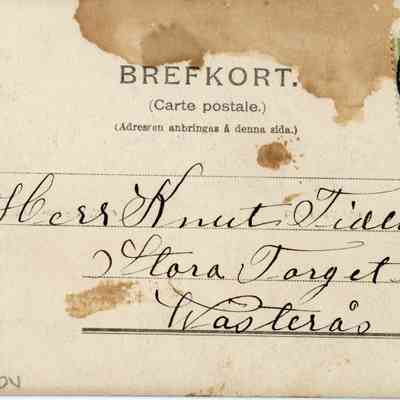 BREFKORT.
(Carte postale.)
(Adressen anbringas å denna sida.)
Herr Knut
Stora Torget
Westerås